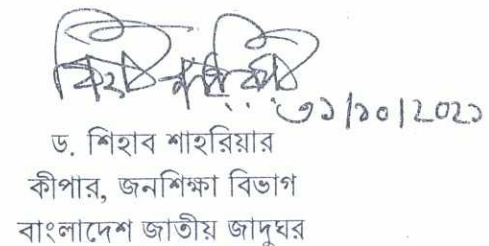 ৩১/১০/২০২১
ড. শিহাব শাহরিয়ার
কীপার, জনশিক্ষা বিভাগ
বাংলাদেশ জাতীয় জাদুঘর